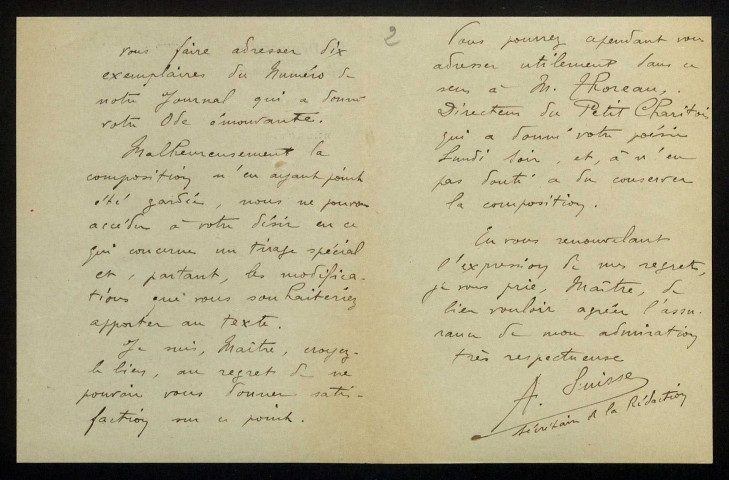 vous faire adresser dix
exemplaires du Numéro de
notre Journal qui a donné
votre Ode émouvante.
Malheureusement la
composition n'en ayant point
été gardée, nous ne pouvons
accéder à votre désir en ce
qui concerne un tirage spécial
et, partant, les modifica-
tions que vous souhaiteriez
apporter au texte.
Je suis, Maître, croyez-
le bien, au regret de ne
pouvoir vous donner satis-
faction sur ce point.
2
Vous pourrez cependant vous
adresser utilement dans ce
sens à M. Thoreau,
Directeur du Petit Charitois
qui a donné votre poésie
Lundi soir, et, à n'en
pas douter a du conserver
la composition.
En vous renouvelant
l'expression de mes regrets,
je vous prie, Maître, de
bien vouloir agréer l'assu-
rance de mon admiration
très respectueuse
A. Suisse
Secrétaire de la Rédaction